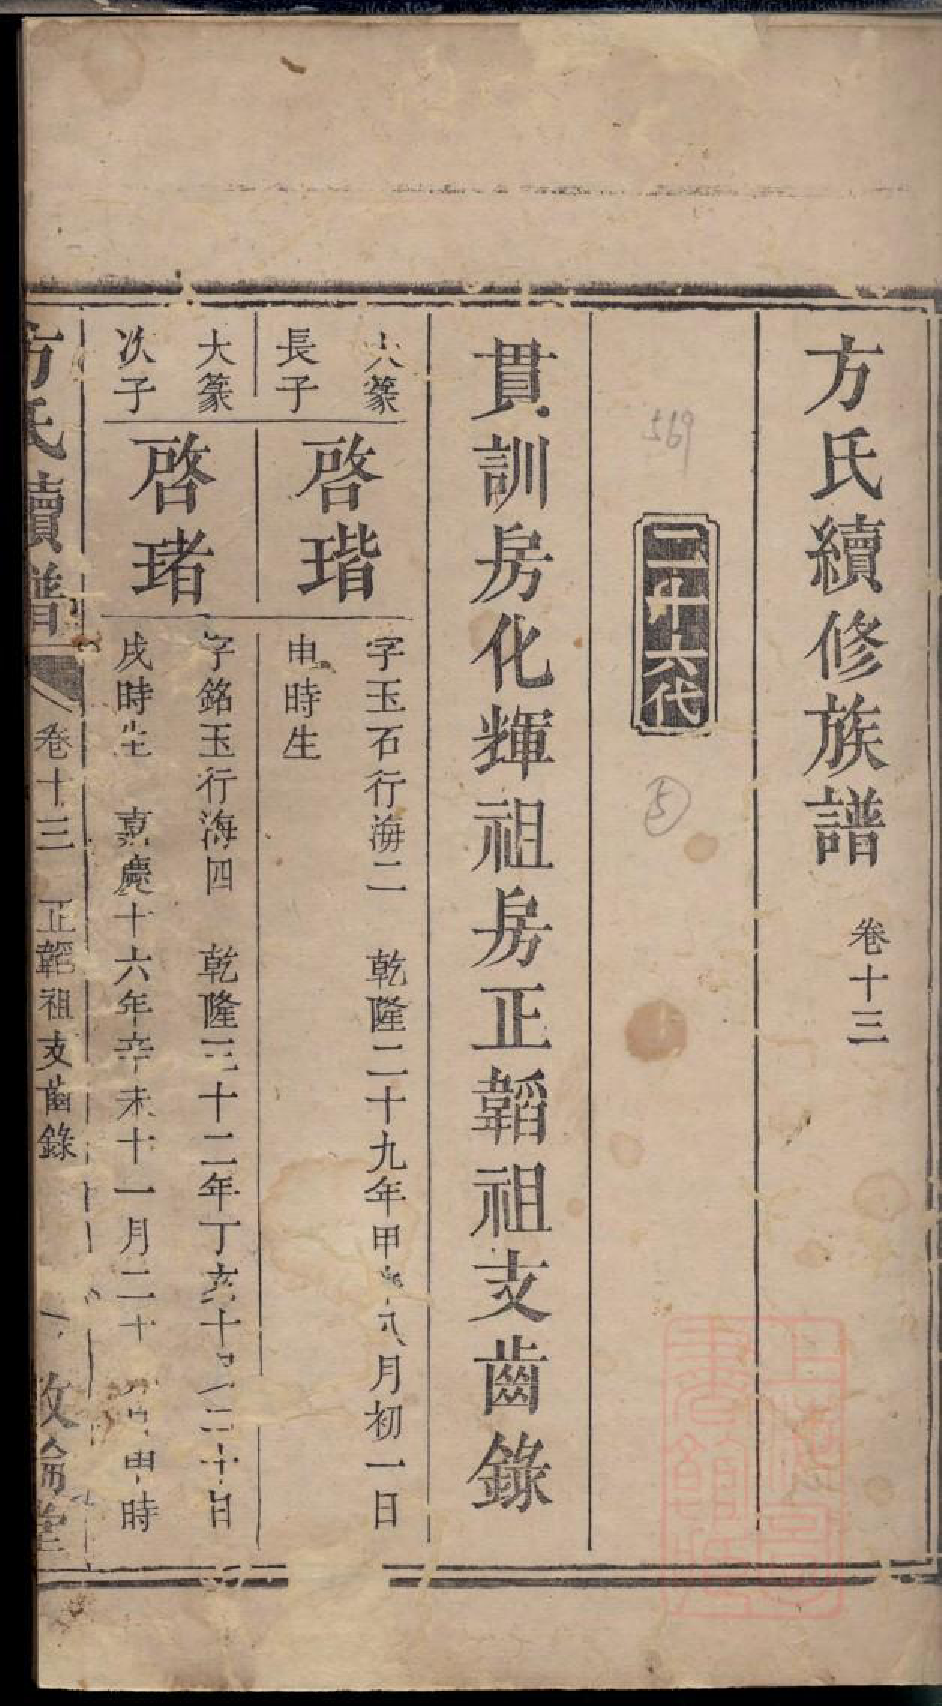 方氏續修族譜 卷十三
二十六代
569
5
貫訓房化輝祖房正韜祖支齒錄
大篆
長子
啓瑎
字玉石行海二 乾隆二十九年甲 八月初一日
申時生
大篆
次子
啓瑎
字銘玉行海四 乾隆三十二年丁亥十 二十日
戌時生 嘉慶十六年辛未十一月二十 申時
方氏續譜 卷十三 正韜祖支齒錄 一 敦倫堂